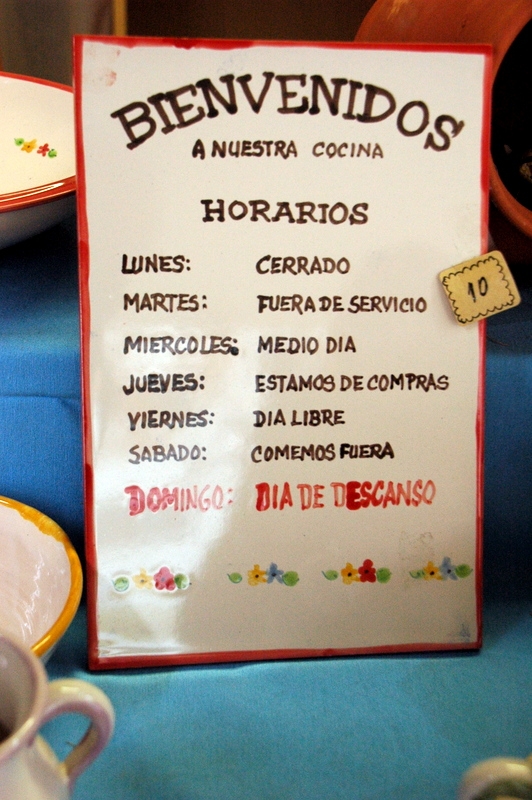 BIENVENIDOS
A NUESTRA COCINA
HORARIOS
LUNES: CERRADO
MARTES: FUERA DE SERVICIO
MIERCOLES: MEDIO DIA
JUEVES: ESTAMOS DE COMPRAS
VIERNES: DIA LIBRE
SABADO: COMEMOS FUERA
DOMINGO: DIA DE DESCANSO
10